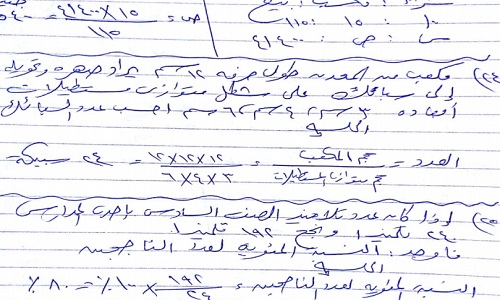 ١٠ : ١٥ : ١١٠
س : ص : ٤١٤٠٠
ص = ٤١٤٠٠ × ١٥ / ١١٠
٢٤) مكعب من المعدن طول حرفه ١٢ سم يراد صهره وتحويله
إلى سبائك على شكل متوازى مستطيلات
أبعاده ٣ سم ٤ سم ٦ سم احسب عدد السبائك
الحل
العدد = حجم المكعب / حجم متوازى المستطيلات = ١٢×١٢×١٢ / ٣×٤×٦ = ٢٤ سبيكة
٢٥) إذا كان عدد تلاميذ الصف السادس بإحدى المدارس
٢٤٠ تلميذا ونجح ١٩٢ تلميذا
فأوجد : النسبة المئوية لعدد الناجحين
الحل
النسبة المئوية لعدد الناجحين = ١٩٢ / ٢٤٠ × ١٠٠٪ = ٨٠٪